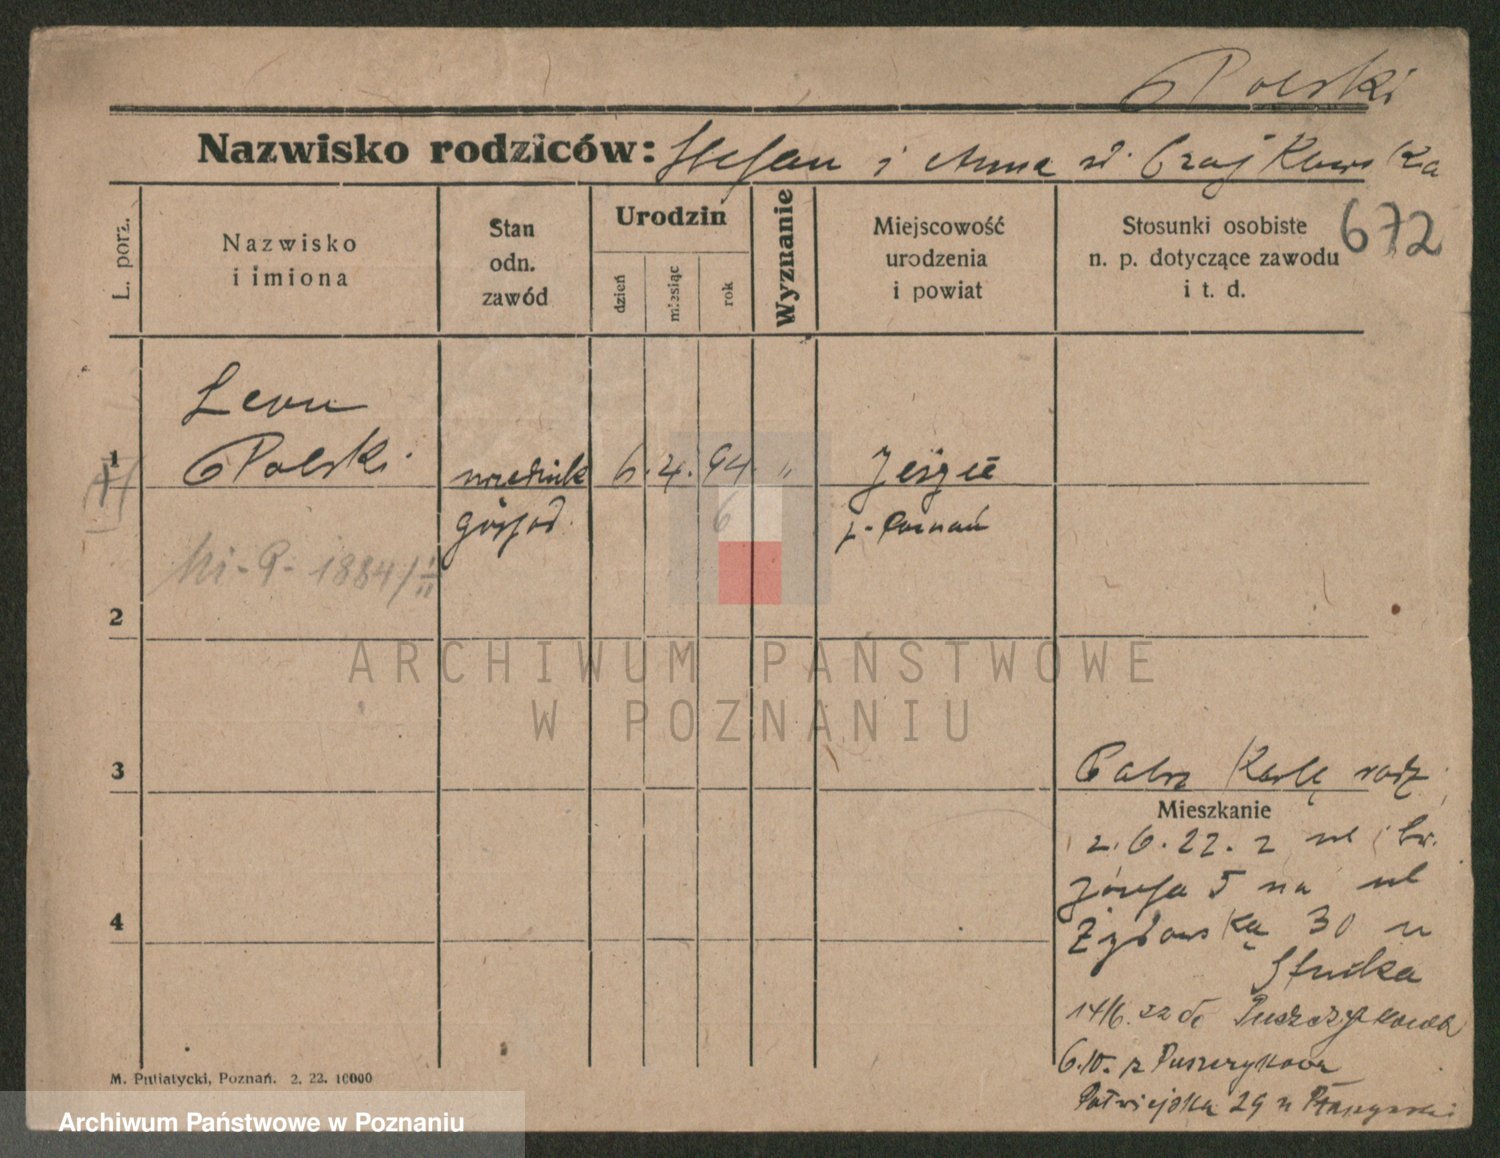 Polski
Nazwisko rodziców: Stefan i Anna Czajkowska
L. porz.
Nazwisko
i imiona
Stan
odn.
zawód
Urodzin
dzień
miesiąc
rok
Wyznanie
Miejscowość
urodzenia
i powiat
Stosunki osobiste
n. p. dotyczące zawodu
i t. d.
672
Leon
1
Polski urzednik 6. 4. 94 "
gospod. 6 p. Poznań
1884/
2
ARCHIWUM PAŃSTWOWE
W POZNANIU
3
Patrz Kartę rodz.
Mieszkanie
2.6.22. z ul św.
Józefa 5 na ul
4
Żydowską 30 u
14/6. 22 do Puszczykowa
6.10. z Puszczykowa
Półwiejska 29 u
M. Putiatycki, Poznań. 2. 22. 10000
Archiwum Państwowe w Poznaniu